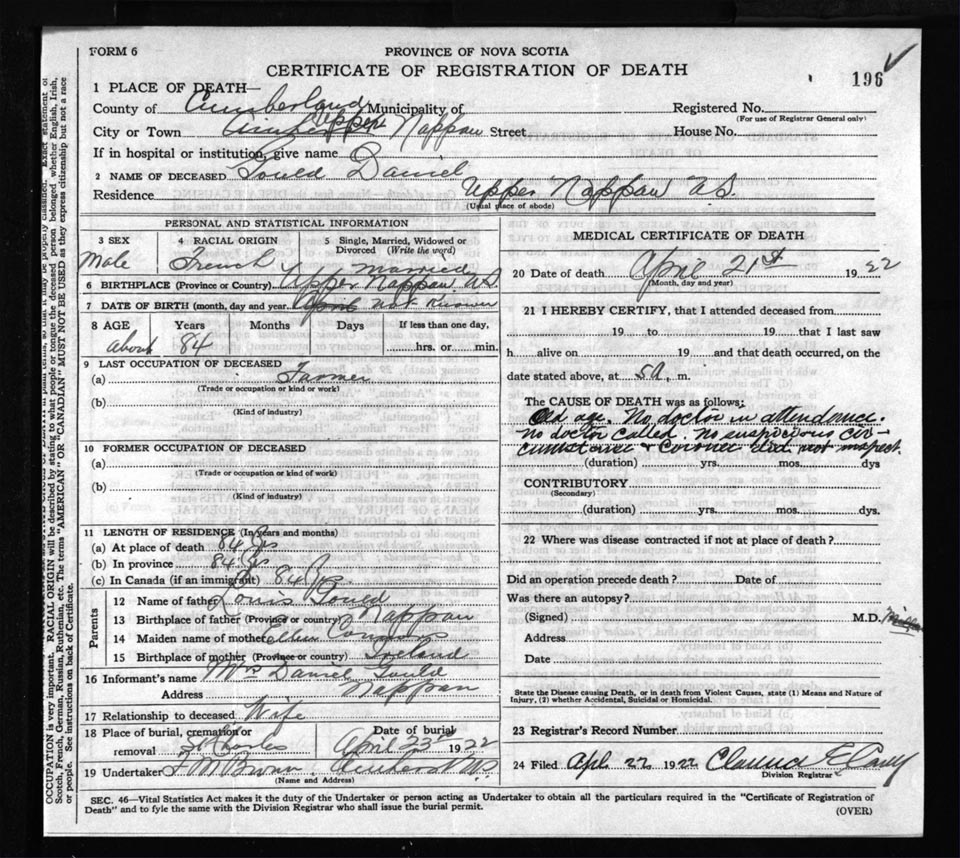 FORM 6
PROVINCE OF NOVA SCOTIA
CERTIFICATE OF REGISTRATION OF DEATH
196
1 PLACE OF DEATH—
County of Cumberland Municipality of
Registered No.
(For use of Registrar General only)
City or Town Upper Nappan Street
House No.
If in hospital or institution, give name
2 NAME OF DECEASED Gould Daniel
Residence Upper Nappan N.S.
(Usual place of abode)
PERSONAL AND STATISTICAL INFORMATION
3 SEX
Male
4 RACIAL ORIGIN
French
5 Single, Married, Widowed or Divorced (Write the word)
Married
6 BIRTHPLACE (Province or Country) Upper Nappan N.S.
7 DATE OF BIRTH (month, day and year) Not Known
8 AGE Years Months Days If less than one day,
about 84 hrs. or min.
9 LAST OCCUPATION OF DECEASED
(a) Farmer
(Trade or occupation or kind or work)
(b)
(Kind of industry)
10 FORMER OCCUPATION OF DECEASED
(a)
(Trade or occupation or kind of work)
(b)
(Kind of industry)
11 LENGTH OF RESIDENCE (In years and months)
(a) At place of death 84 yrs
(b) In province 84 yrs
(c) In Canada (if an immigrant) 84 yrs
Parents
12 Name of father Louis Gould
13 Birthplace of father (Province or country) Nappan
14 Maiden name of mother Ellen Connors
15 Birthplace of mother (Province or country) Ireland
16 Informant's name Mrs Daniel Gould
Address Nappan
17 Relationship to deceased Wife
18 Place of burial, cremation or removal St Charles
Date of burial April 23rd 1922
19 Undertaker Amherst N.S.
(Name and Address)
MEDICAL CERTIFICATE OF DEATH
20 Date of death April 21st 1922
(Month, day and year)
21 I HEREBY CERTIFY, that I attended deceased from
19 to 19 that I last saw
h alive on 19 and that death occurred, on the
date stated above, at 5 a, m.
The CAUSE OF DEATH was as follows:
Old age. No doctor in attendence.
no doctor called. no suspicious cir-
cumstances & Coroner did not inspect.
(duration) yrs. mos. dys
CONTRIBUTORY
(Secondary)
(duration) yrs. mos. dys.
22 Where was disease contracted if not at place of death?
Did an operation precede death? Date of
Was there an autopsy?
(Signed) M.D.
Address
Date
State the Disease causing Death, or in death from Violent Causes, state (1) Means and Nature of
Injury, (2) whether Accidental, Suicidal or Homicidal.
23 Registrar's Record Number
24 Filed Apl 22 1922
Division Registrar
SEC. 46—Vital Statistics Act makes it the duty of the Undertaker or person acting as Undertaker to obtain all the particulars required in the "Certificate of Registration of
Death" and to fyle the same with the Division Registrar who shall issue the burial permit.
(OVER)
OCCUPATION is very important. RACIAL ORIGIN will be described by stating to what people or tongue the deceased person belonged whether English, Irish,
Scotch, French, German, Russian, Ruthenian, etc. The terms "AMERICAN" OR "CANADIAN" MUST NOT BE USED as they express citizenship but not a race
or people. See instructions on back of Certificate.